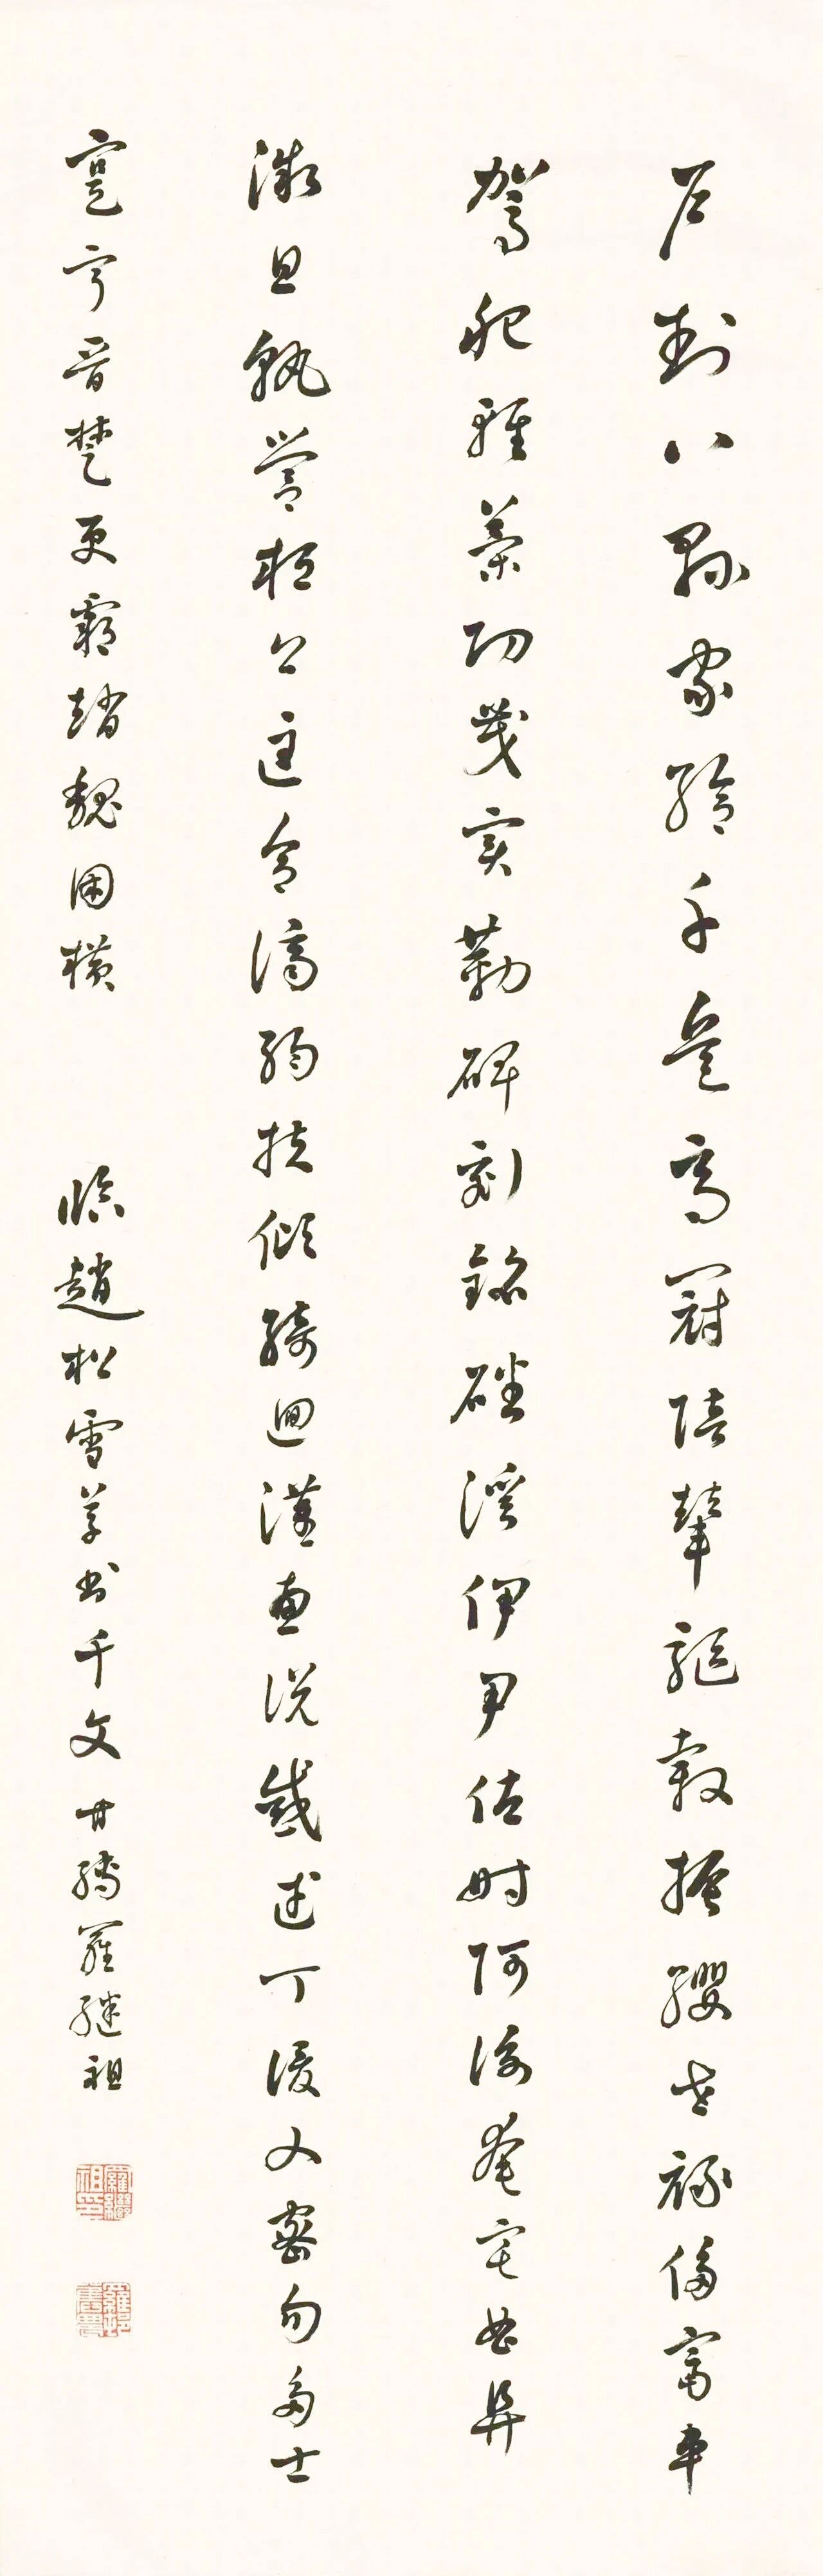 戶封八縣家給千兵高冠陪輦驅轂振纓世祿侈富車
駕肥輕策功茂實勒碑刻銘磻溪伊尹佐時阿衡奄宅曲阜
微旦孰營桓公匡合濟弱扶傾綺迴漢惠說感武丁俊乂密勿多士
寔寧晉楚更霸趙魏困橫
臨趙松雪草書千文 甘孺羅繼祖
羅繼祖印